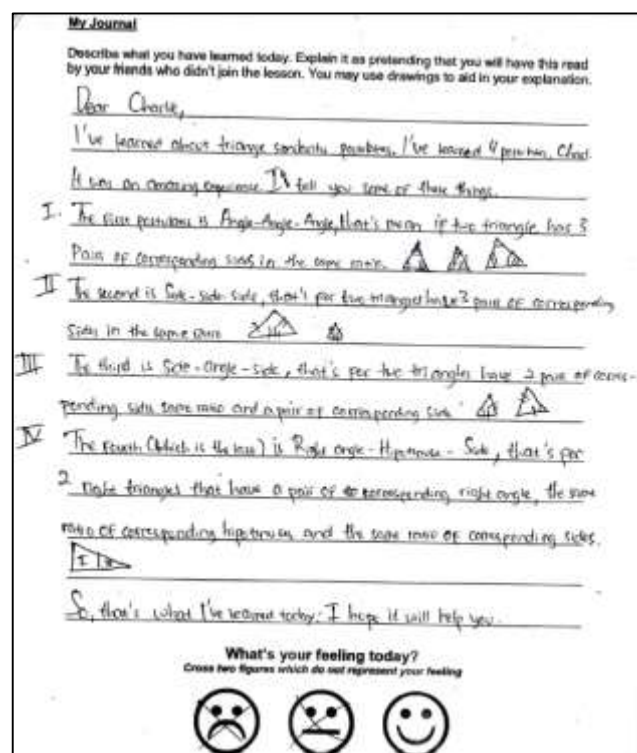 My Journal
Describe what you have learned today. Explain it as pretending that you will have this read
by your friends who didn't join the lesson. You may use drawings to aid in your explanation.
Dear Charlie,
I've learned about triangle I've learned 4 
It was an amazing experience. tell you some of these things.
I. The first is Angle-Angle-Angle, that's mean if two triangle has 3
Pair of corresponding in the same ratio.
II The second is Side-side-side, that's for two triangles have 3 pair of corresponding
Sides in the same ratio
III The third is Side-angle-side, that's for two triangles have 2 pair of corres-
ponding sides same ratio and a pair of corresponding
IV The fourth (which is the ) is Right angle - - Side, that's for
2 right triangles that have a pair of corresponding right angle, the same
ratio of corresponding and the same ratio of corresponding sides.
I II
So, that's what I've learned today. I hope it will help you.
What's your feeling today?
Cross two figures which do not represent your feeling